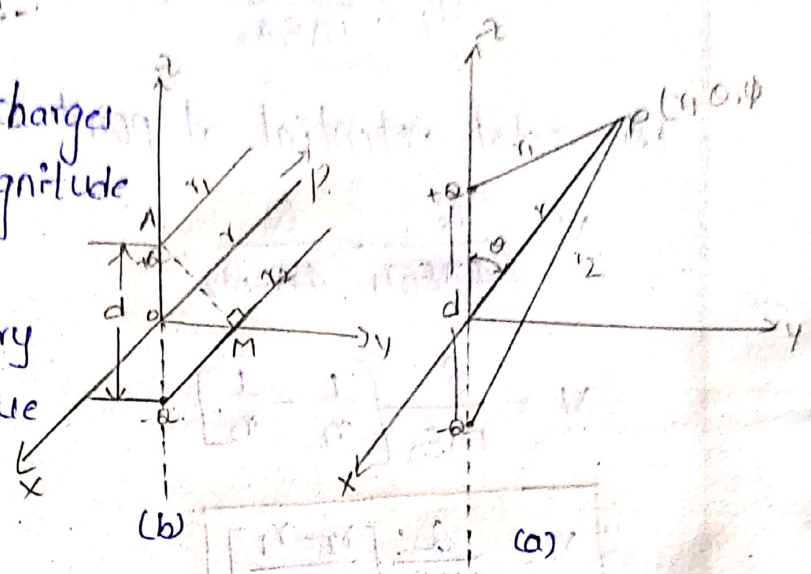 charges
gnitude
ry
ue
z
A
r1
P
r
+Q
r2
d
O
M
y
-Q
X
(b)
z
P(r, θ, φ
r1
+Q
r
θ
r2
d
y
-Q
X
(a)